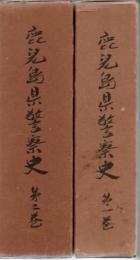 鹿児島県警察史 第二巻
鹿児島県警察史 第一巻